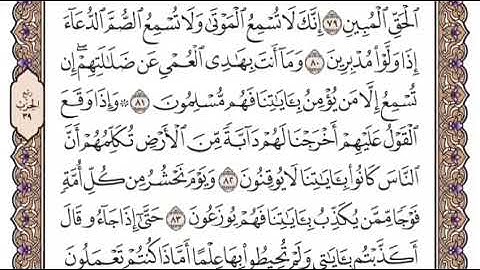 ٱلْحَقِّ ٱلْمُبِينِ ٧٩ إِنَّكَ لَا تُسْمِعُ ٱلْمَوْتَىٰ وَلَا تُسْمِعُ ٱلصُّمَّ ٱلدُّعَآءَ
إِذَا وَلَّوْا۟ مُدْبِرِينَ ٨٠ وَمَآ أَنتَ بِهَـٰدِى ٱلْعُمْىِ عَن ضَلَـٰلَتِهِمْ ۖ إِن
تُسْمِعُ إِلَّا مَن يُؤْمِنُ بِـَٔايَـٰتِنَا فَهُم مُّسْلِمُونَ ٨١ ۞ وَإِذَا وَقَعَ
ٱلْقَوْلُ عَلَيْهِمْ أَخْرَجْنَا لَهُمْ دَآبَّةً مِّنَ ٱلْأَرْضِ تُكَلِّمُهُمْ أَنَّ
ٱلنَّاسَ كَانُوا۟ بِـَٔايَـٰتِنَا لَا يُوقِنُونَ ٨٢ وَيَوْمَ نَحْشُرُ مِن كُلِّ أُمَّةٍ
فَوْجًا مِّمَّن يُكَذِّبُ بِـَٔايَـٰتِنَا فَهُمْ يُوزَعُونَ ٨٣ حَتَّىٰٓ إِذَا جَآءُو قَالَ
أَكَذَّبْتُم بِـَٔايَـٰتِى وَلَمْ تُحِيطُوا۟ بِهَا عِلْمًا أَمَّاذَا كُنتُمْ تَعْمَلُونَ
ربع
الحزب
٣٩